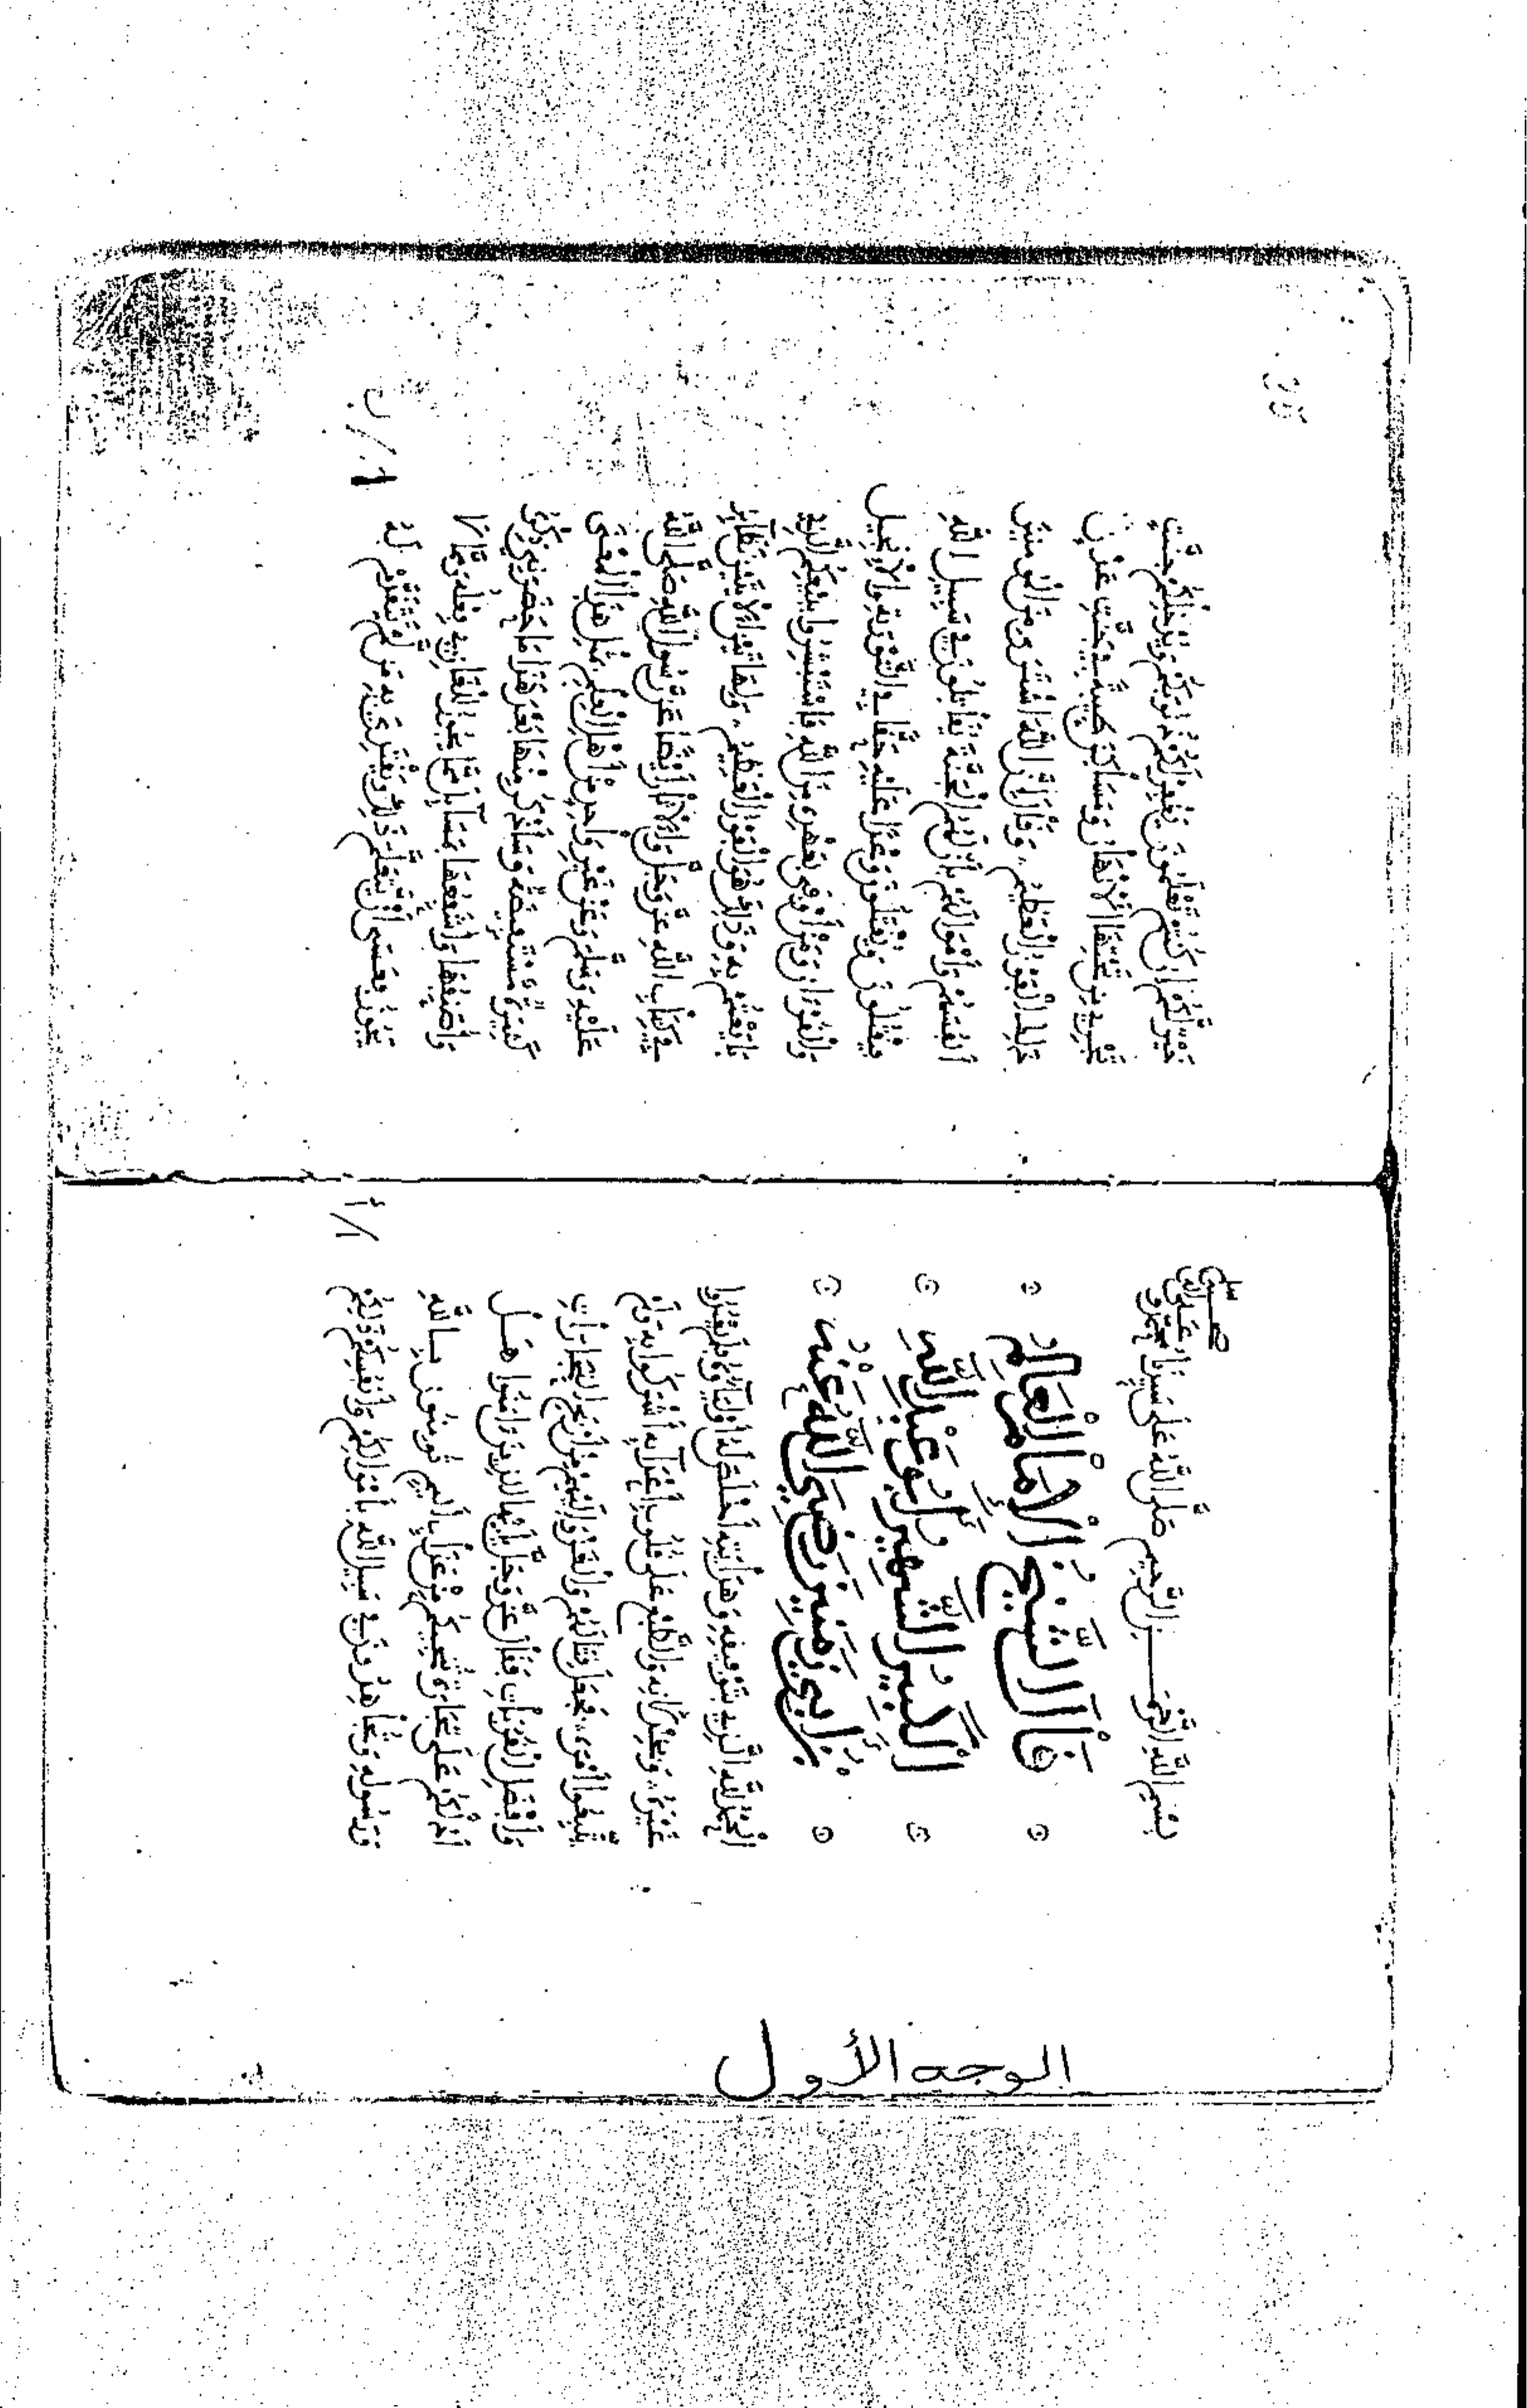 الوجه الأول
١/أ
بِسْمِ اللَّهِ الرَّحْمَـــنِ الرَّحِيمِ صَلَّى اللَّهُ عَلَى سَيِّدِنَا مُحَمَّدٍ وَعَلَى آلِهِ
قَالَ الشَّيْخُ الْإِمَامُ الْعَالِمُ
الْكَبِيرُ الشَّهِيرُ أَبُو عَبْدِ اللَّهِ
بْنُ أَبِي زَمَنِينَ رَضِيَ اللَّهُ عَنْهُ
الْحَمْدُ لِلَّهِ الَّذِي بِتَوْفِيقِهِ وَهِدَايَتِهِ أَخْلَصَ لَهُ أَوْلِيَاؤُهُ فَلَمْ يَعْبُدُوا
غَيْرَهُ وَبِخِذْلَانِهِ وَالطَّبْعِ عَلَى قُلُوبِ أَعْدَائِهِ أَشْرَكُوا بِهِ وَلَمْ
يَتَّبِعُوا الْهُدَى فَجَعَلَ قِتَالَهُمْ وَالْغَزْوَ إِلَيْهِمْ مِنْ أَرْبَحِ التِّجَارَاتِ
وَأَفْضَلِ الْقُرُبَاتِ فَقَالَ عَزَّ وَجَلَّ يَا أَيُّهَا الَّذِينَ ءَامَنُوا هَــلْ
أَدُلُّكُمْ عَلَى تِجَارَةٍ تُنْجِيكُمْ مِنْ عَذَابٍ أَلِيمٍ تُومِنُونَ بِاللَّهِ
وَرَسُولِهِ وَتُجَاهِدُونَ فِي سَبِيلِ اللَّهِ بِأَمْوَالِكُمْ وَأَنْفُسِكُمْ ذَلِكُمْ
١/ب
خَيْرٌ لَكُمْ إِنْ كُنْتُمْ تَعْلَمُونَ يَغْفِرْ لَكُمْ ذُنُوبَكُمْ وَيُدْخِلْكُمْ جَنَّتٍ
تَجْرِي مِنْ تَحْتِهَا الْأَنْهَارُ وَمَسَاكِنَ طَيِّبَةً فِي جَنَّتِ عَدْنٍ
ذَلِكَ الْفَوْزُ الْعَظِيمُ وَقَالَ إِنَّ اللَّهَ اشْتَرَى مِنَ الْمُومِنِينَ
أَنْفُسَهُمْ وَأَمْوَالَهُمْ بِأَنَّ لَهُمُ الْجَنَّةَ يُقَاتِلُونَ فِي سَبِيلِ اللَّهِ
فَيَقْتُلُونَ وَيُقْتَلُونَ وَعْدًا عَلَيْهِ حَقًّا فِي التَّوْرَيةِ وَالْإِنْجِيلِ
وَالْقُرْءَانِ وَمَنْ أَوْفَى بِعَهْدِهِ مِنَ اللَّهِ فَاسْتَبْشِرُوا بِبَيْعِكُمُ الَّذِي
بَايَعْتُمْ بِهِ وَذَلِكَ هُوَ الْفَوْزُ الْعَظِيمُ وَلِهَاتَيْنِ الْآيَتَيْنِ نَظَائِرُ
فِي كِتَابِ اللَّهِ عَزَّ وَجَلَّ وَالْآثَارُ أَيْضًا عَنْ رَسُولِ اللَّهِ صَلَّى اللَّهُ
عَلَيْهِ وَسَلَّمَ وَعَنْ غَيْرِ وَاحِدٍ مِنْ أَهْلِ الْعِلْمِ بِمِثْلِ هَذَا الْمَعْنَى
كَثِيرَةٌ مُسْتَفِيضَةٌ وَسَأَذْكُرُ مِنْهَا بَعْدَ هَذَا مَا حَضَرَنِي ذِكْرُهُ
وَأُضِيفُهَا وَأَشْفَعُهَا بِمَسَائِلَ مِمَّا يَجُوزُ لِلْغَازِي فِعْلُهُ وَمِمَّا لَا
يَجُوزُ فَعَسَى أَنْ يَتَعَلَّمَ ذَلِكَ وَيَقْتَدِيَ بِهِ مَنْ لَمْ يَتَقَدَّمْ لَهُ